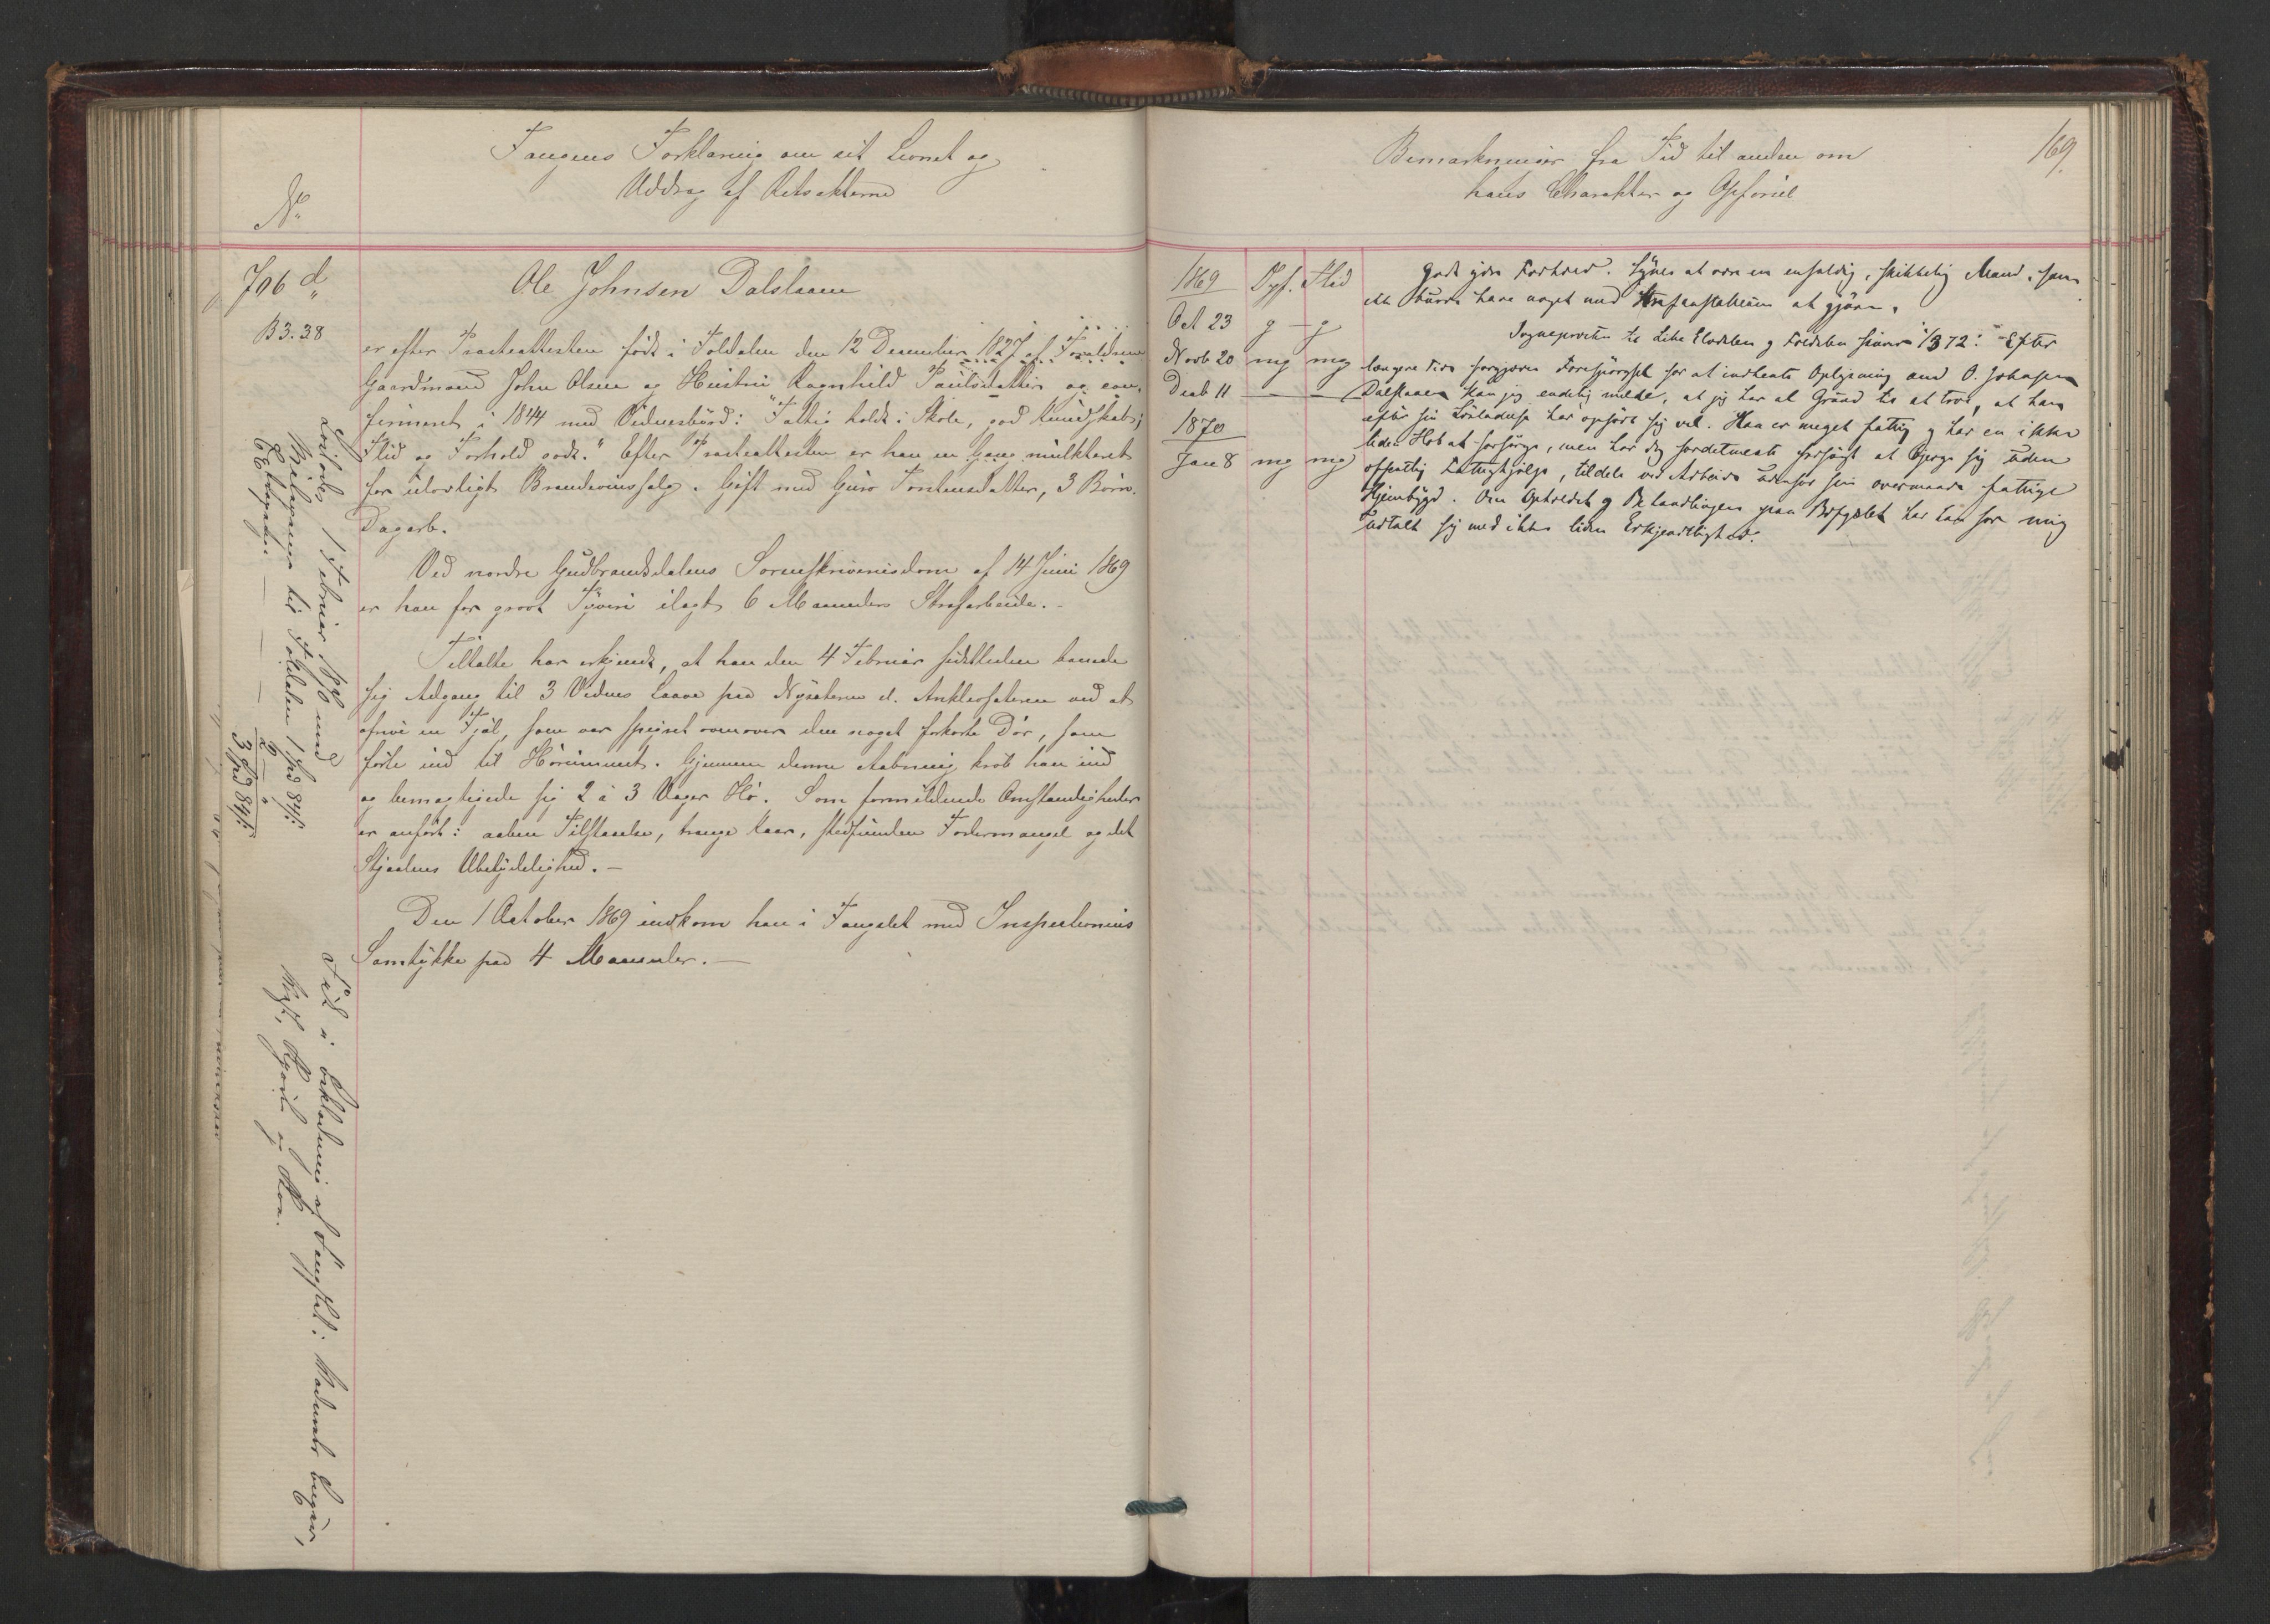 Fangens Forklaring om sit Levnet og
Uddrag af Retsakterne
No
706 d
B 3. 38
Ole Johnsen Dalslaaen
er efter Præsteattesten født i Foldalen den 12 December 1827 af Forældrene
Gaardmand John Olsen og Hustru Ragnhild Paulsdatter og con-
firmeret i 1844 med Vidnesbyrd: "Faltig holdt i Skole, god Kundskab;
Flid og Forhold godt." Efter Præsteattesten er han en Gang mulkteret
for ulovligt Brændevinssalg. Gift med Guro Torstensdatter, 3 Børn.
Dagarb.
Ved nordre Gudbrandsdalens Sorenskriveriesdom af 14 Juni 1869
er han for grovt Tyveri ilagt 6 Maaneders Strafarbeide. -
Tiltalte har erkjendt, at han den 4 Februar sidstleden banede
sig Adgang til 3 Vidnes Laave paa Nysæteren el. Anklevsæteren ved at
afrive en Fjæl, som var spigret ovenover den noget forkorte Dør, som
førte ind til Hørummet. Gjennem denne Aabning krøb han ind
og bemægtigede sig 2 à 3 Voger Hø. Som formildende Omstændigheder
er anført: aaben Tilstaaelse, trange Kaar, stedfunden Fodermangel og det
Stjaalnes Ubetydelighed. -
Den 1 October 1869 indkom han i Fængslet med Inspectionens
Samtykke paa 4 Maaneder. -
Løslades 1 Februar 1870 med
Reisepenge til Foldalen 1 Spd 84 s:
Extrapenge - - 2 - "
3 Spd 84 s:
Fik i Beklædning af Fængslet: Vadmels buxer,
Vest, Skjorte og Skoe.
Bemærkninger fra Tid til anden om
hans Charakter og Opførsel
169.
1869 Opf. Flid
Oct 23 g - g
Novb 20 mg mg
Decb 11 - -
1870
Jan 8 mg mg
Godt ydre Forhold. Synes at være en enfoldig, skikkelig Mand, som
ikke burde have noget med Strafanstalterne at gjøre.
Sognepresten til Lille Elvedalen og Foldalen skriver 1/3 72: "Efter
længere Tids forgjæves Forespørgsel for at indhente Oplysning om O. Johnsen
Dalslaaen kan jeg endelig melde, at jeg har al Grund til at tro, at han
efter sin Løsladelse har opført sig vel. Han er meget fattig og har en ikke
liden Flok at forsørge, men har dog fordetmeste forsøgt at bjerge sig uden
offentlig Fattighjælp, tildels ved Arbeide udenfor sin overmaade fattige
Hjembygd. Om Opholdet og Behandlingen paa Bodsfængslet har han for mig
udtalt sig med ikke liden Erkjendtlighed.